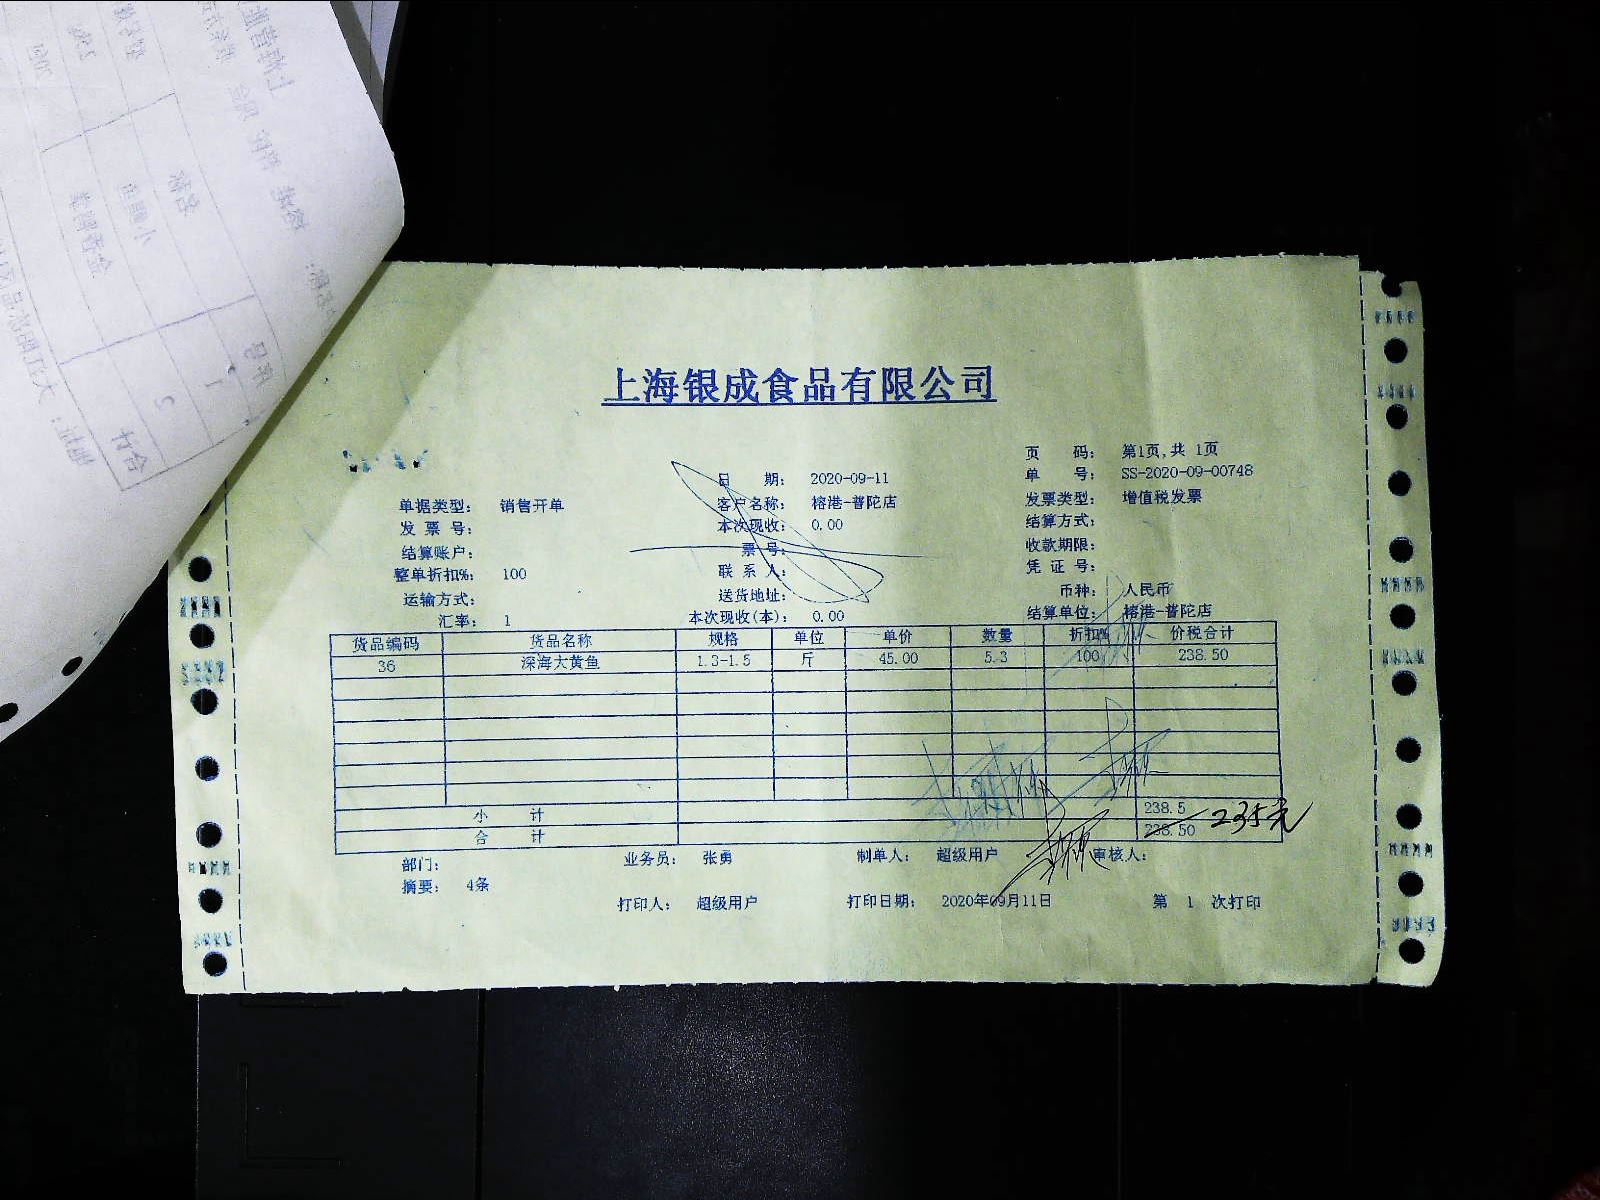 上海银成食品有限公司
页 码: 第1页,共 1页
日 期: 2020-09-11 单 号: SS-2020-09-00748
单据类型: 销售开单 客户名称: 榕港-普陀店 发票类型: 增值税发票
发 票 号: 本次现收: 0.00 结算方式:
结算账户: 票 号: 收款期限:
整单折扣%: 100 联 系 人: 凭 证 号:
运输方式: 送货地址: 币种: 人民币
汇率: 1 本次现收(本): 0.00 结算单位: 榕港-普陀店
货品编码 货品名称 规格 单位 单价 数量 折扣% 价税合计
36 深海大黄鱼 1.3-1.5 斤 45.00 5.3 100 238.50
小 计 238.5
合 计 238.50 235元
部门: 业务员: 张勇 制单人: 超级用户 审核人:
摘要: 4条
打印人: 超级用户 打印日期: 2020年09月11日 第 1 次打印